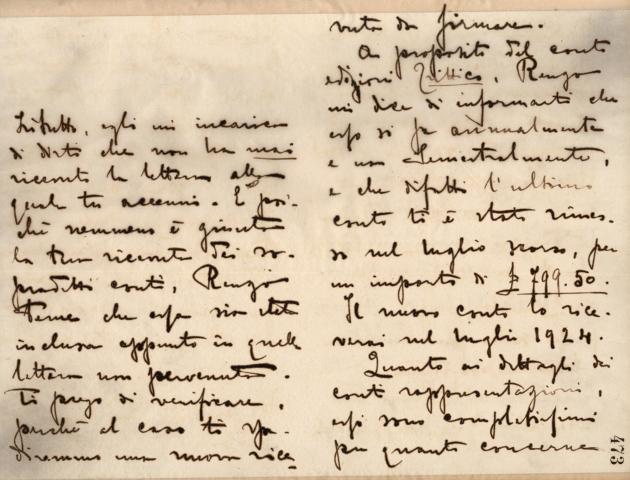 tutto, egli mi incarica
di dirti che non ha mai
ricevuto la lettera alla
quale tu accenni. E poi-
chè nemmeno è giunta
la tua ricevuta dei so-
praddetti conti, Renzo
teme che essa sia stata
inclusa appunto in quella
lettera non pervenuta.
Ti prego di verificare,
perchè al caso ti spe-
diremmo una nuova rice-
vuta da firmare.
A proposito del conto
edizioni Trittico, Renzo
mi dice di informarti che
esso si fa annualmente
e non semestralmente,
e che difatti l'ultimo
conto ti è stato rimes-
so nel luglio scorso, per
un importo di £ 799.50.
Il nuovo conto lo rice-
verai nel luglio 1924.
Quanto ai dettagli dei
conti rappresentazioni,
essi sono completissimi
per quanto concerne
473